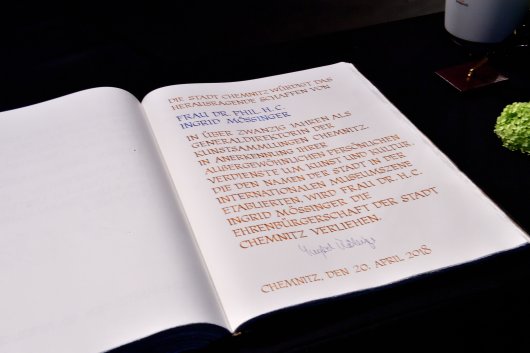 DIE STADT CHEMNITZ WÜRDIGT DAS
HERAUSRAGENDE SCHAFFEN VON
FRAU DR. PHIL. H. C.
INGRID MÖSSINGER
IN ÜBER ZWANZIG JAHREN ALS
GENERALDIREKTORIN DER
KUNSTSAMMLUNGEN CHEMNITZ.
IN ANERKENNUNG IHRER
AUßERGEWÖHNLICHEN PERSÖNLICHEN
VERDIENSTE UM KUNST UND KULTUR,
DIE DEN NAMEN DER STADT IN DER
INTERNATIONALEN MUSEUMSSZENE
ETABLIERTEN, WIRD FRAU DR. H. C.
INGRID MÖSSINGER DIE
EHRENBÜRGERSCHAFT DER STADT
CHEMNITZ VERLIEHEN.
CHEMNITZ, DEN 20. APRIL 2018